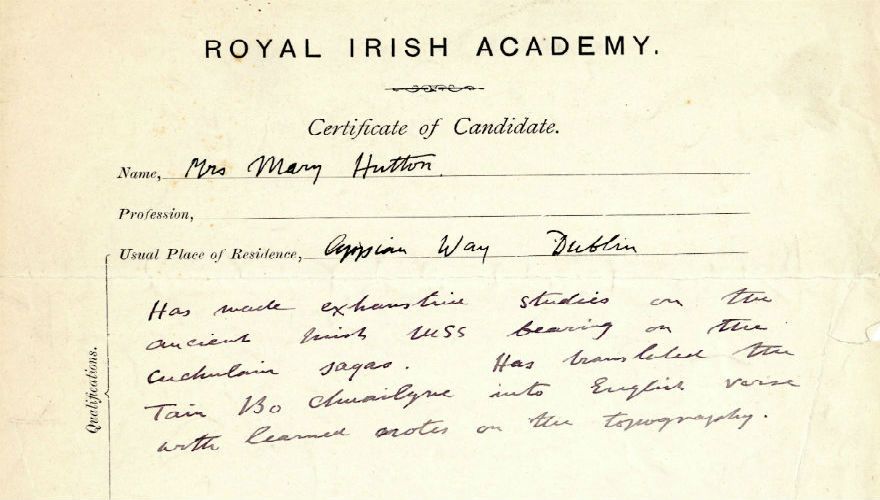 ROYAL IRISH ACADEMY.
Certificate of Candidate.
Name, Mrs Mary Hutton.
Profession,
Usual Place of Residence, Appian Way Dublin
Qualifications.
Has made exhaustive studies on the
ancient Irish MSS bearing on the
Cuchulain sagas. Has translated the
Tain Bo Chuailgne into English verse
with learned notes on the topography.